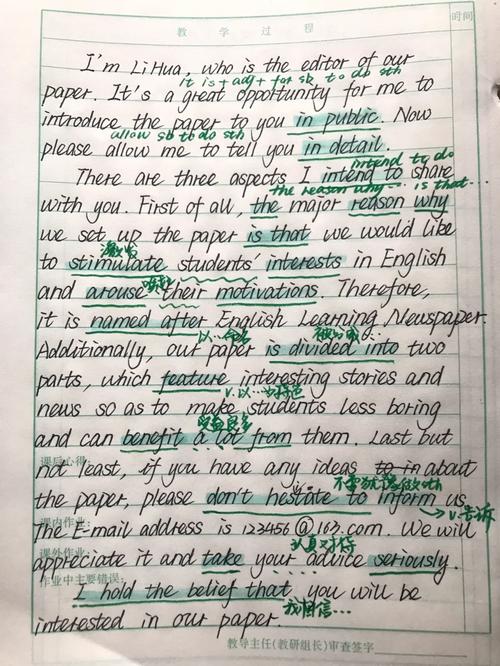 教 学 过 程
时间
I'm Li Hua, who is the editor of our
it is + adj + for sb to do sth
paper. It's a great opportunity for me to
introduce the paper to you in public. Now
allow sb to do sth
please allow me to tell you in detail.
intend to do
There are three aspects I intend to share
the reason why ... is that ...
with you. First of all, the major reason why
we set up the paper is that we would like
激发
to stimulate students' interests in English
唤起
and arouse their motivations. Therefore,
it is named after English Learning Newspaper.
以...命名
被分成...
Additionally, our paper is divided into two
parts, which feature interesting stories and
v. 以...为特色
news so as to make students less boring
受益良多
and can benefit a lot from them. Last but
课后心得:
not least, if you have any ideas to in about
不要犹豫做sth
the paper, please don't hestate to inform us.
→ v.告诉
课内作业:
The E-mail address is 123456@163.com. We will
课外作业:
认真对待
appreciate it and take your advice seriously.
作业中主要错误:
I hold the belief that you will be
我相信...
interested in our paper.
教导主任(教研组长)审查签字